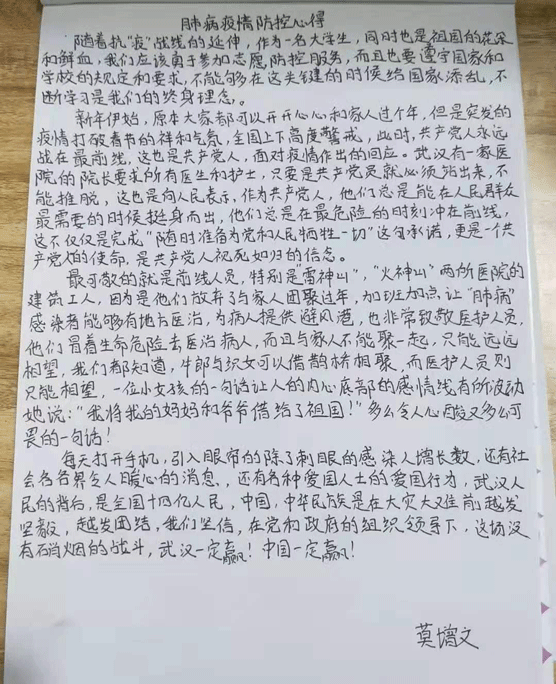 肺病疫情防控心得
随着抗“疫”战线的延伸，作为一名大学生，同时也是祖国的花朵
和鲜血，我们应该勇于参加志愿防控服务，而且也要遵守国家和
学校的规定和要求，不能够在这关键的时候给国家添乱，不
断学习是我们的终身理念。
新年伊始，原本大家都可以开开心心和家人过个年，但是突发的
疫情打破春节的祥和气氛，全国上下高度警戒，此时，共产党人永远
战在最前线，这也是共产党人，面对疫情作出的回应。武汉有一家医
院的院长要求所有医生和护士，只要是共产党员就必须站出来，不
能推脱，这也是向人民表示，作为共产党人，他们总是能在人民群众
最需要的时候挺身而出，他们总是在最危险的时刻冲在前线，
这不仅仅是完成“随时准备为党和人民牺牲一切”这句承诺，更是一个共
产党人的使命，是共产党人视死如归的信念。
最可敬的就是前线人员，特别是“雷神山”，“火神山”两所医院的
建筑工人，因为是他们放弃了与家人团聚过年，加班加点让“肺病”
感染者能够有地方医治，为病人提供避风港，也非常致敬医护人员，
他们冒着生命危险去医治病人，而且与家人不能聚一起，只能远远
相望，我们都知道，牛郎与织女可以借鹊桥相聚，而医护人员则
只能相望，一位小女孩的一句话让人的内心底部的感情线有所波动
她说：“我将我的妈妈和爷爷借给了祖国！”多么令人心酸又多么可
畏的一句话！
每天打开手机，引入眼帘的除了刺眼的感染人增长数，还有社
会各界令人暖心的消息，还有各种爱国人士的爱国行为，武汉人
民的背后，是全国十四亿人民，中国，中华民族是在大灾大难前越发
坚毅，越发团结，我们坚信，在党和政府的组织领导下，这场没
有硝烟的战斗，武汉一定赢！中国一定赢！
莫增文